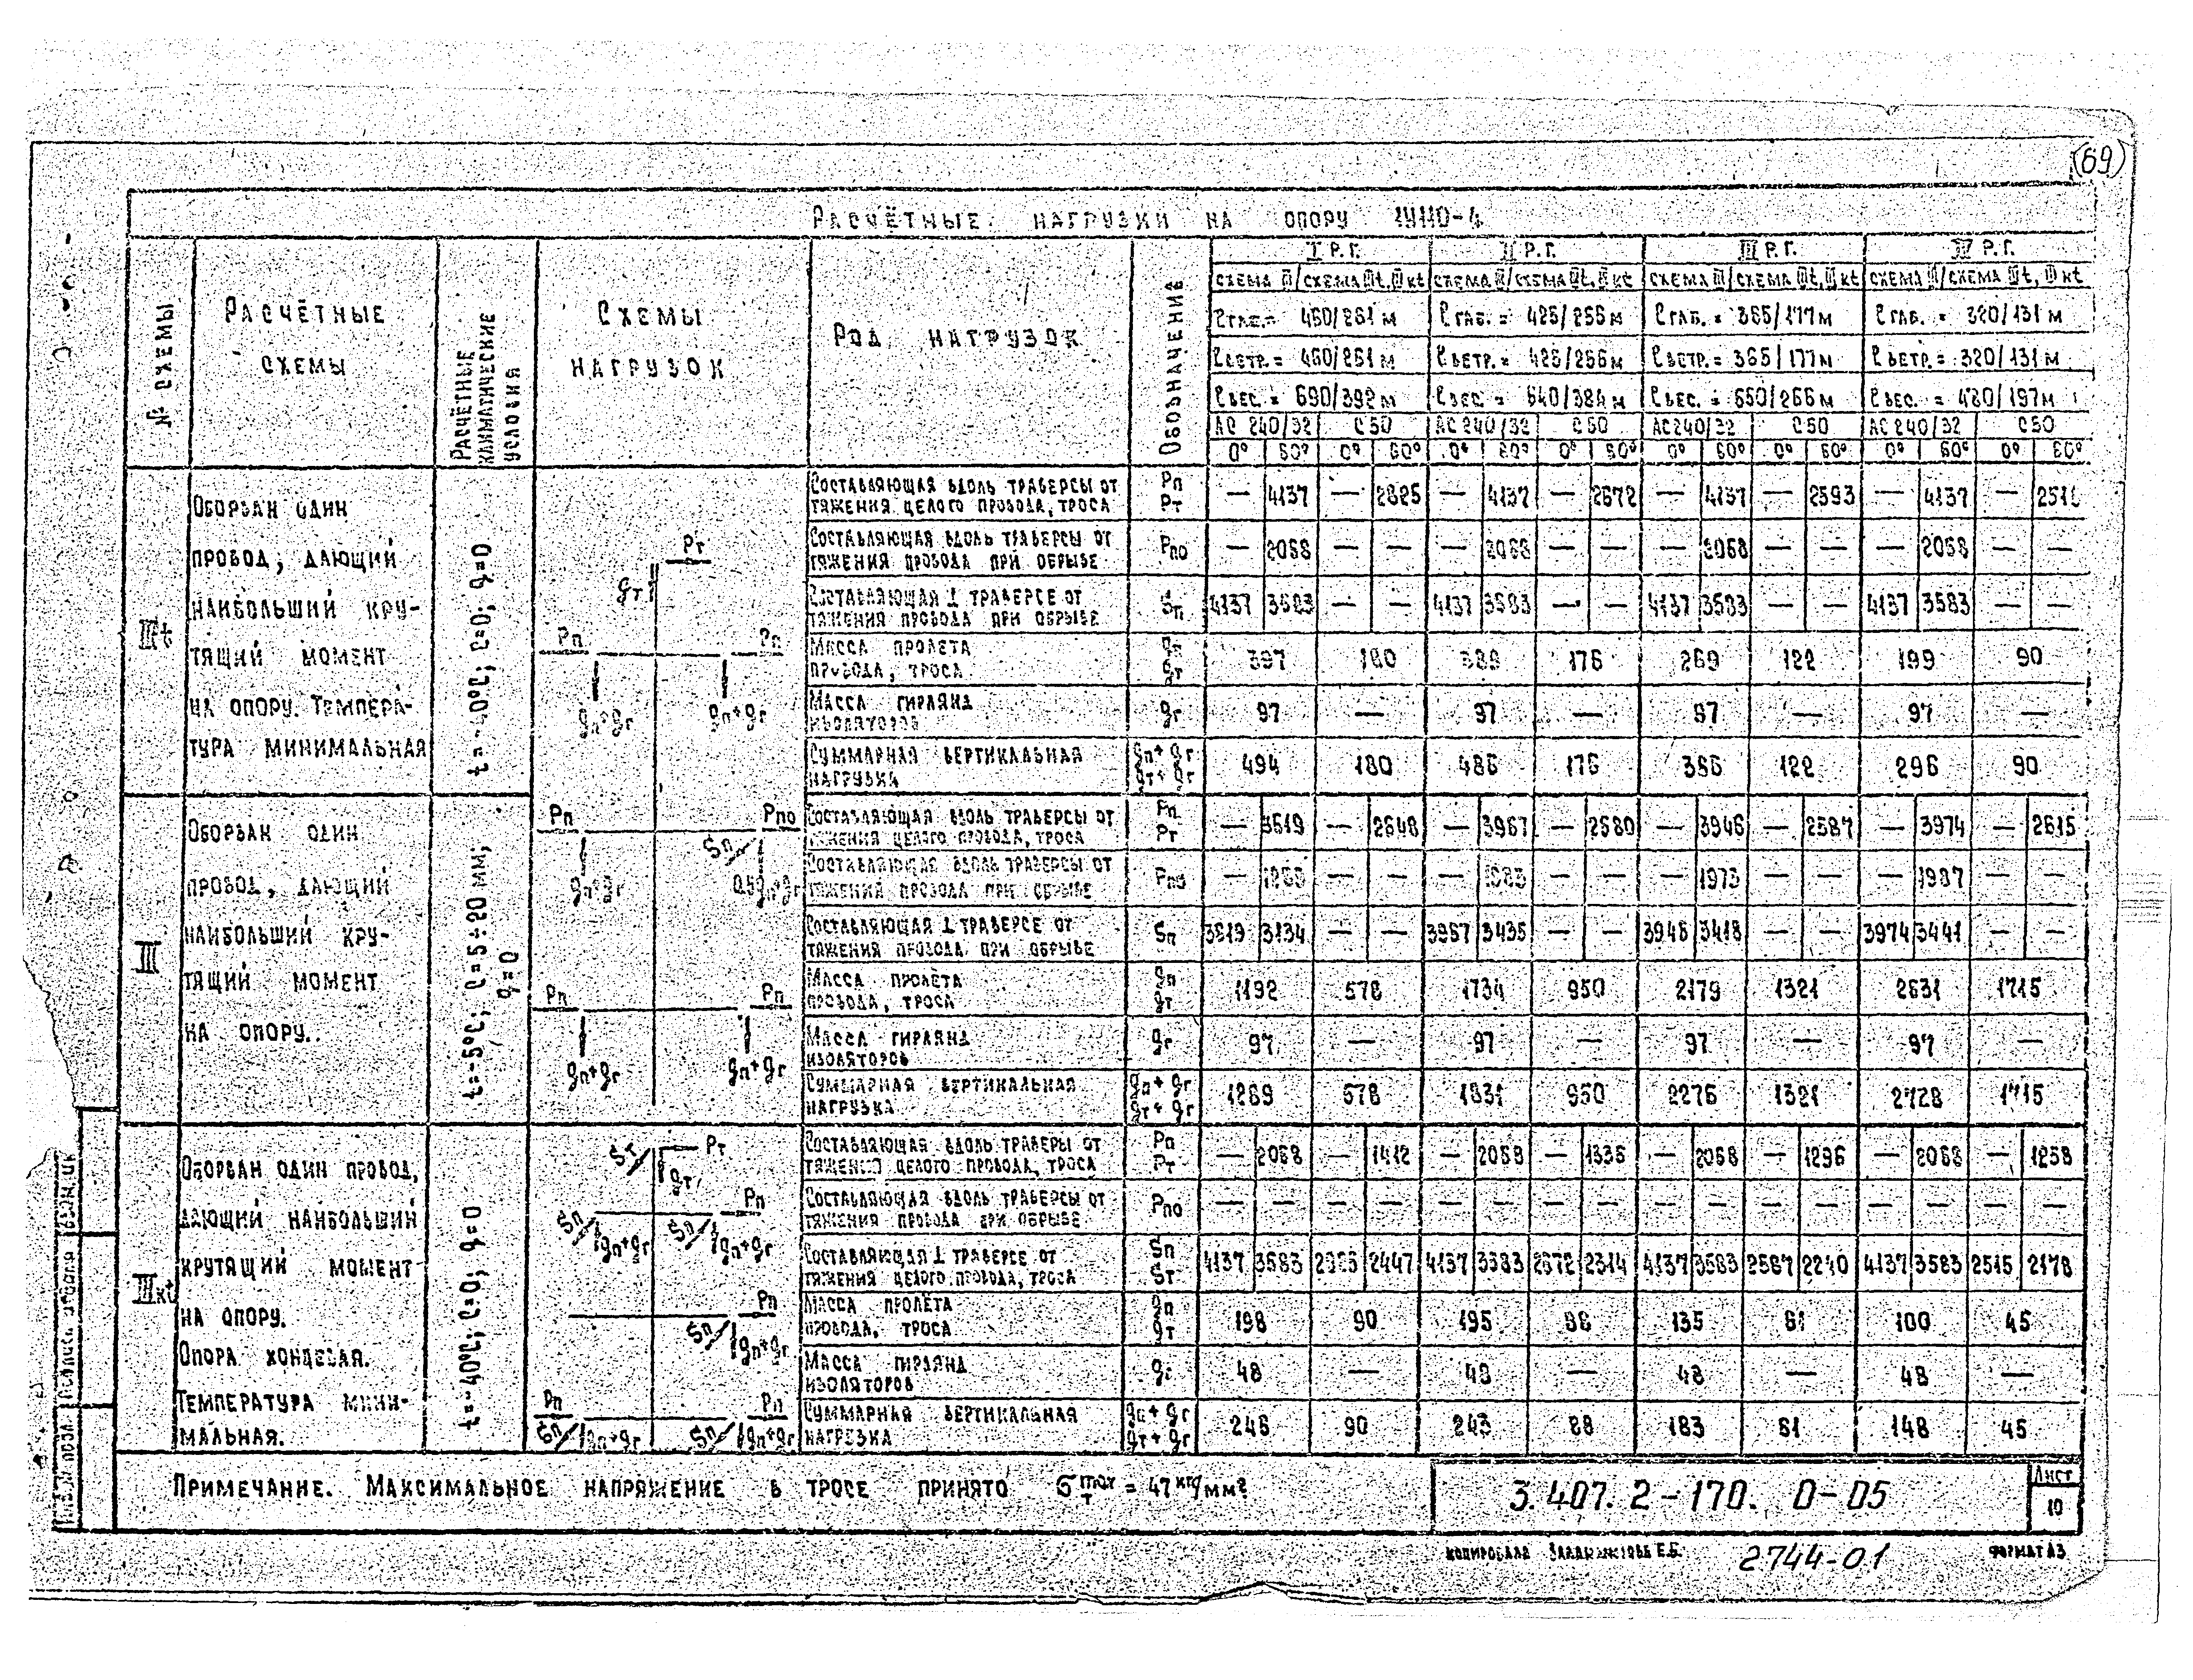 (69)
РАСЧЁТНЫЕ НАГРУЗКИ НА ОПОРУ 1У110-4
№ СХЕМЫ
РАСЧЁТНЫЕ СХЕМЫ
РАСЧЁТНЫЕ КЛИМАТИЧЕСКИЕ УСЛОВИЯ
СХЕМЫ НАГРУЗОК
РОД НАГРУЗОК
ОБОЗНАЧЕНИЕ
I Р.Г. II Р.Г. III Р.Г. IV Р.Г.
СХЕМА III/СХЕМА IIIt, IIIкt СХЕМА III/СХЕМА IIIt, IIIкt СХЕМА III/СХЕМА IIIt, IIIкt СХЕМА III/СХЕМА IIIt, IIIкt
ℓГАБ.= 460/261 м ℓГАБ. = 425/256 м ℓГАБ. = 365/177 м ℓГАБ. = 320/131 м
ℓВЕТР.= 460/261 м ℓВЕТР.= 425/256 м ℓВЕТР.= 365/177 м ℓВЕТР.= 320/131 м
ℓВЕС.= 690/392 м ℓВЕС. = 640/384 м ℓВЕС. = 550/266 м ℓВЕС. = 480/197 м
АС 240/32 С50 АС 240/32 С50 АС 240/32 С50 АС 240/32 С50
0° 60° 0° 60° 0° 60° 0° 60° 0° 60° 0° 60° 0° 60° 0° 60°
IIIt
ОБОРВАН ОДИН
ПРОВОД, ДАЮЩИЙ
НАИБОЛЬШИЙ КРУ-
ТЯЩИЙ МОМЕНТ
НА ОПОРУ. ТЕМПЕРА-
ТУРА МИНИМАЛЬНАЯ
t = -40°С; С=0; q=0
СОСТАВЛЯЮЩАЯ ВДОЛЬ ТРАВЕРСЫ ОТ
ТЯЖЕНИЯ ЦЕЛОГО ПРОВОДА, ТРОСА
Рп Рт — 4137 — 2825 — 4137 — 2672 — 4137 — 2593 — 4137 —
СОСТАВЛЯЮЩАЯ ВДОЛЬ ТРАВЕРСЫ ОТ
ТЯЖЕНИЯ ПРОВОДА ПРИ ОБРЫВЕ
Рпо — 2068 — — — 2068 — — — 2068 — — — 2068 — —
СОСТАВЛЯЮЩАЯ ⊥ ТРАВЕРСЕ ОТ
ТЯЖЕНИЯ ПРОВОДА ПРИ ОБРЫВЕ
Sп 4137 3583 — — 4137 3583 — — 4137 3583 — — 4137 3583 — —
МАССА ПРОЛЕТА
ПРОВОДА, ТРОСА
gп gт 397 180 389 176 269 122 199 90
МАССА ГИРЛЯНД
ИЗОЛЯТОРОВ
gг 97 — 97 — 97 — 97 —
СУММАРНАЯ ВЕРТИКАЛЬНАЯ
НАГРУЗКА
gп+gг gт+gг 494 180 486 176 366 122 296 90
Рт
gт
Рп Рп
gп+gг gп+gг
III
ОБОРВАН ОДИН
ПРОВОД, ДАЮЩИЙ
НАИБОЛЬШИЙ КРУ-
ТЯЩИЙ МОМЕНТ
НА ОПОРУ.
t=-5°С; С=5÷20 мм;
q=0
Рп Рпо
Sп
gп+gг 0,5gп+gг
Рп Рп
gп+gг gп+gг
СОСТАВЛЯЮЩАЯ ВДОЛЬ ТРАВЕРСЫ ОТ
ТЯЖЕНИЯ ЦЕЛОГО ПРОВОДА, ТРОСА
Рп Рт — 3619 — 2548 — 3967 — 2580 — 3946 — 2587 — 3974 — 2615
СОСТАВЛЯЮЩАЯ ВДОЛЬ ТРАВЕРСЫ ОТ
ТЯЖЕНИЯ ПРОВОДА ПРИ ОБРЫВЕ
Рпо — — — — 1983 — — — 1973 — — — 1987 — —
СОСТАВЛЯЮЩАЯ ⊥ ТРАВЕРСЕ ОТ
ТЯЖЕНИЯ ПРОВОДА ПРИ ОБРЫВЕ
Sп 3619 3134 — — 3967 3435 — — 3946 3418 — — 3974 3441 — —
МАССА ПРОЛЁТА
ПРОВОДА, ТРОСА
gп gт 1192 578 1734 950 2179 1321 2631 1715
МАССА ГИРЛЯНД
ИЗОЛЯТОРОВ
gг 97 — 97 — 97 — 97 —
СУММАРНАЯ ВЕРТИКАЛЬНАЯ
НАГРУЗКА
gп+gг gт+gг 1289 578 1831 950 2276 1321 2728 1715
IIIкt
ОБОРВАН ОДИН ПРОВОД,
ДАЮЩИЙ НАИБОЛЬШИЙ
КРУТЯЩИЙ МОМЕНТ
НА ОПОРУ.
ОПОРА КОНЦЕВАЯ.
ТЕМПЕРАТУРА МИНИ-
МАЛЬНАЯ.
t=-40°С; С=0; q=0
Sт Рт
gт
Рп
Sп gп+gг Sп gп+gг
Рп
Sп gп+gг
Рп Рп
Sп gп+gг Sп gп+gг
СОСТАВЛЯЮЩАЯ ВДОЛЬ ТРАВЕРЫ ОТ
ТЯЖЕНИЯ ЦЕЛОГО ПРОВОДА, ТРОСА
Рп Рт — 2068 — 1412 — 2068 — 1336 — 2068 — 1296 — 2068 — 1258
СОСТАВЛЯЮЩАЯ ВДОЛЬ ТРАВЕРСЫ ОТ
ТЯЖЕНИЯ ПРОВОДА ПРИ ОБРЫВЕ
Рпо — — — — — — — — — — — — — — — —
СОСТАВЛЯЮЩАЯ ⊥ ТРАВЕРСЕ ОТ
ТЯЖЕНИЯ ЦЕЛОГО ПРОВОДА, ТРОСА
Sп Sт 4137 3583 2825 2447 4137 3583 2672 2314 4137 3583 2587 2240 4137 3583 2515 2178
МАССА ПРОЛЁТА
ПРОВОДА, ТРОСА
gп gт 198 90 195 88 135 61 100 45
МАССА ГИРЛЯНД
ИЗОЛЯТОРОВ
gг 48 — 48 — 48 — 48 —
СУММАРНАЯ ВЕРТИКАЛЬНАЯ
НАГРЕЗКА
gп+gг gт+gг 246 90 243 88 183 61 148 45
ПРИМЕЧАНИЕ. МАКСИМАЛЬНОЕ НАПРЯЖЕНИЕ В ТРОСЕ ПРИНЯТО σт max = 47 кг/мм²
3.407.2-170. 0-05
ЛИСТ
10
КОПИРОВАЛА Е.Б. 2744-01 ФОРМАТ А3